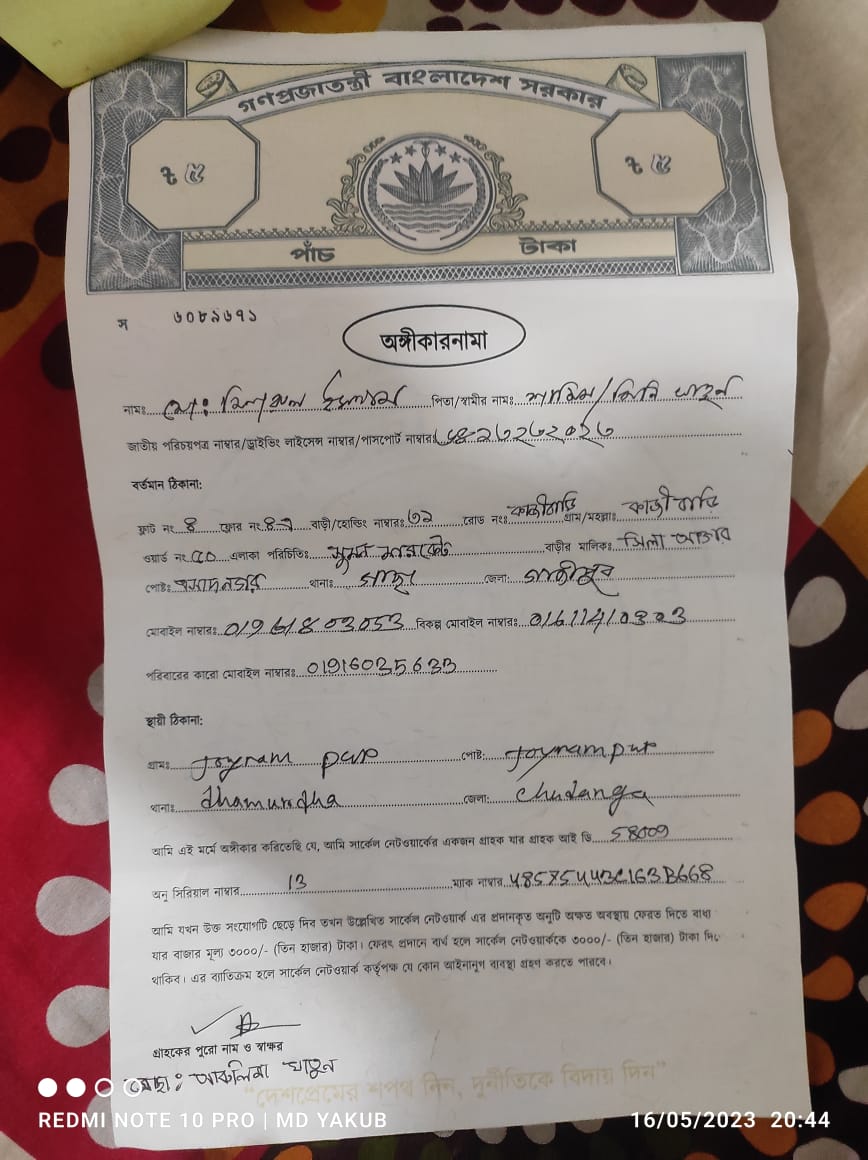 গণপ্রজাতন্ত্রী বাংলাদেশ সরকার
৳ ৫ ৳ ৫
পাঁচ টাকা
স ৬০৮৯৬৭১
অঙ্গীকারনামা
নামঃ মোঃ ইসলাম পিতা/স্বামীর নামঃ
জাতীয় পরিচয়পত্র নাম্বার/ড্রাইভিং লাইসেন্স নাম্বার/পাসপোর্ট নাম্বারঃ
বর্তমান ঠিকানা:
ফ্লাট নং ৪ ফ্লোর নং বাড়ী/হোল্ডিং নাম্বারঃ ৩২ রোড নংঃ কাজীবাড়ি গ্রাম/মহল্লাঃ কাজীবাড়ি
ওয়ার্ড নং এলাকা পরিচিতিঃ সুমন মার্কেট বাড়ীর মালিকঃ আক্তার
পোষ্টঃ থানাঃ গাছা জেলা: গাজীপুর
মোবাইল নাম্বারঃ 01961803053 বিকল্প মোবাইল নাম্বারঃ
পরিবারের কারো মোবাইল নাম্বারঃ 01916035633
স্থায়ী ঠিকানা:
গ্রামঃ Joyram pur পোষ্ট: Joyrampur
থানাঃ dhamurdha জেলা: Chudanga
আমি এই মর্মে অঙ্গীকার করিতেছি যে, আমি সার্কেল নেটওয়ার্কের একজন গ্রাহক যার গ্রাহক আই ডি 58009
অনু সিরিয়াল নাম্বার 13 ম্যাক নাম্বার 48575443C163B668
আমি যখন উক্ত সংযোগটি ছেড়ে দিব তখন উল্লেখিত সার্কেল নেটওয়ার্ক এর প্রদানকৃত অনুটি অক্ষত অবস্থায় ফেরত দিতে বাধ্য
যার বাজার মূল্য ৩০০০/- (তিন হাজার) টাকা। ফেরৎ প্রদানে ব্যর্থ হলে সার্কেল নেটওয়ার্ককে ৩০০০/- (তিন হাজার) টাকা দি
থাকিব। এর ব্যতিক্রম হলে সার্কেল নেটওয়ার্ক কর্তৃপক্ষ যে কোন আইনানুগ ব্যবস্থা গ্রহণ করতে পারবে।
গ্রাহকের পুরো নাম ও স্বাক্ষর
মোছাঃ আকলিমা খাতুন
"দেশপ্রেমের শপথ নিন, দুর্নীতিকে বিদায় দিন"
REDMI NOTE 10 PRO | MD YAKUB 16/05/2023 20:44